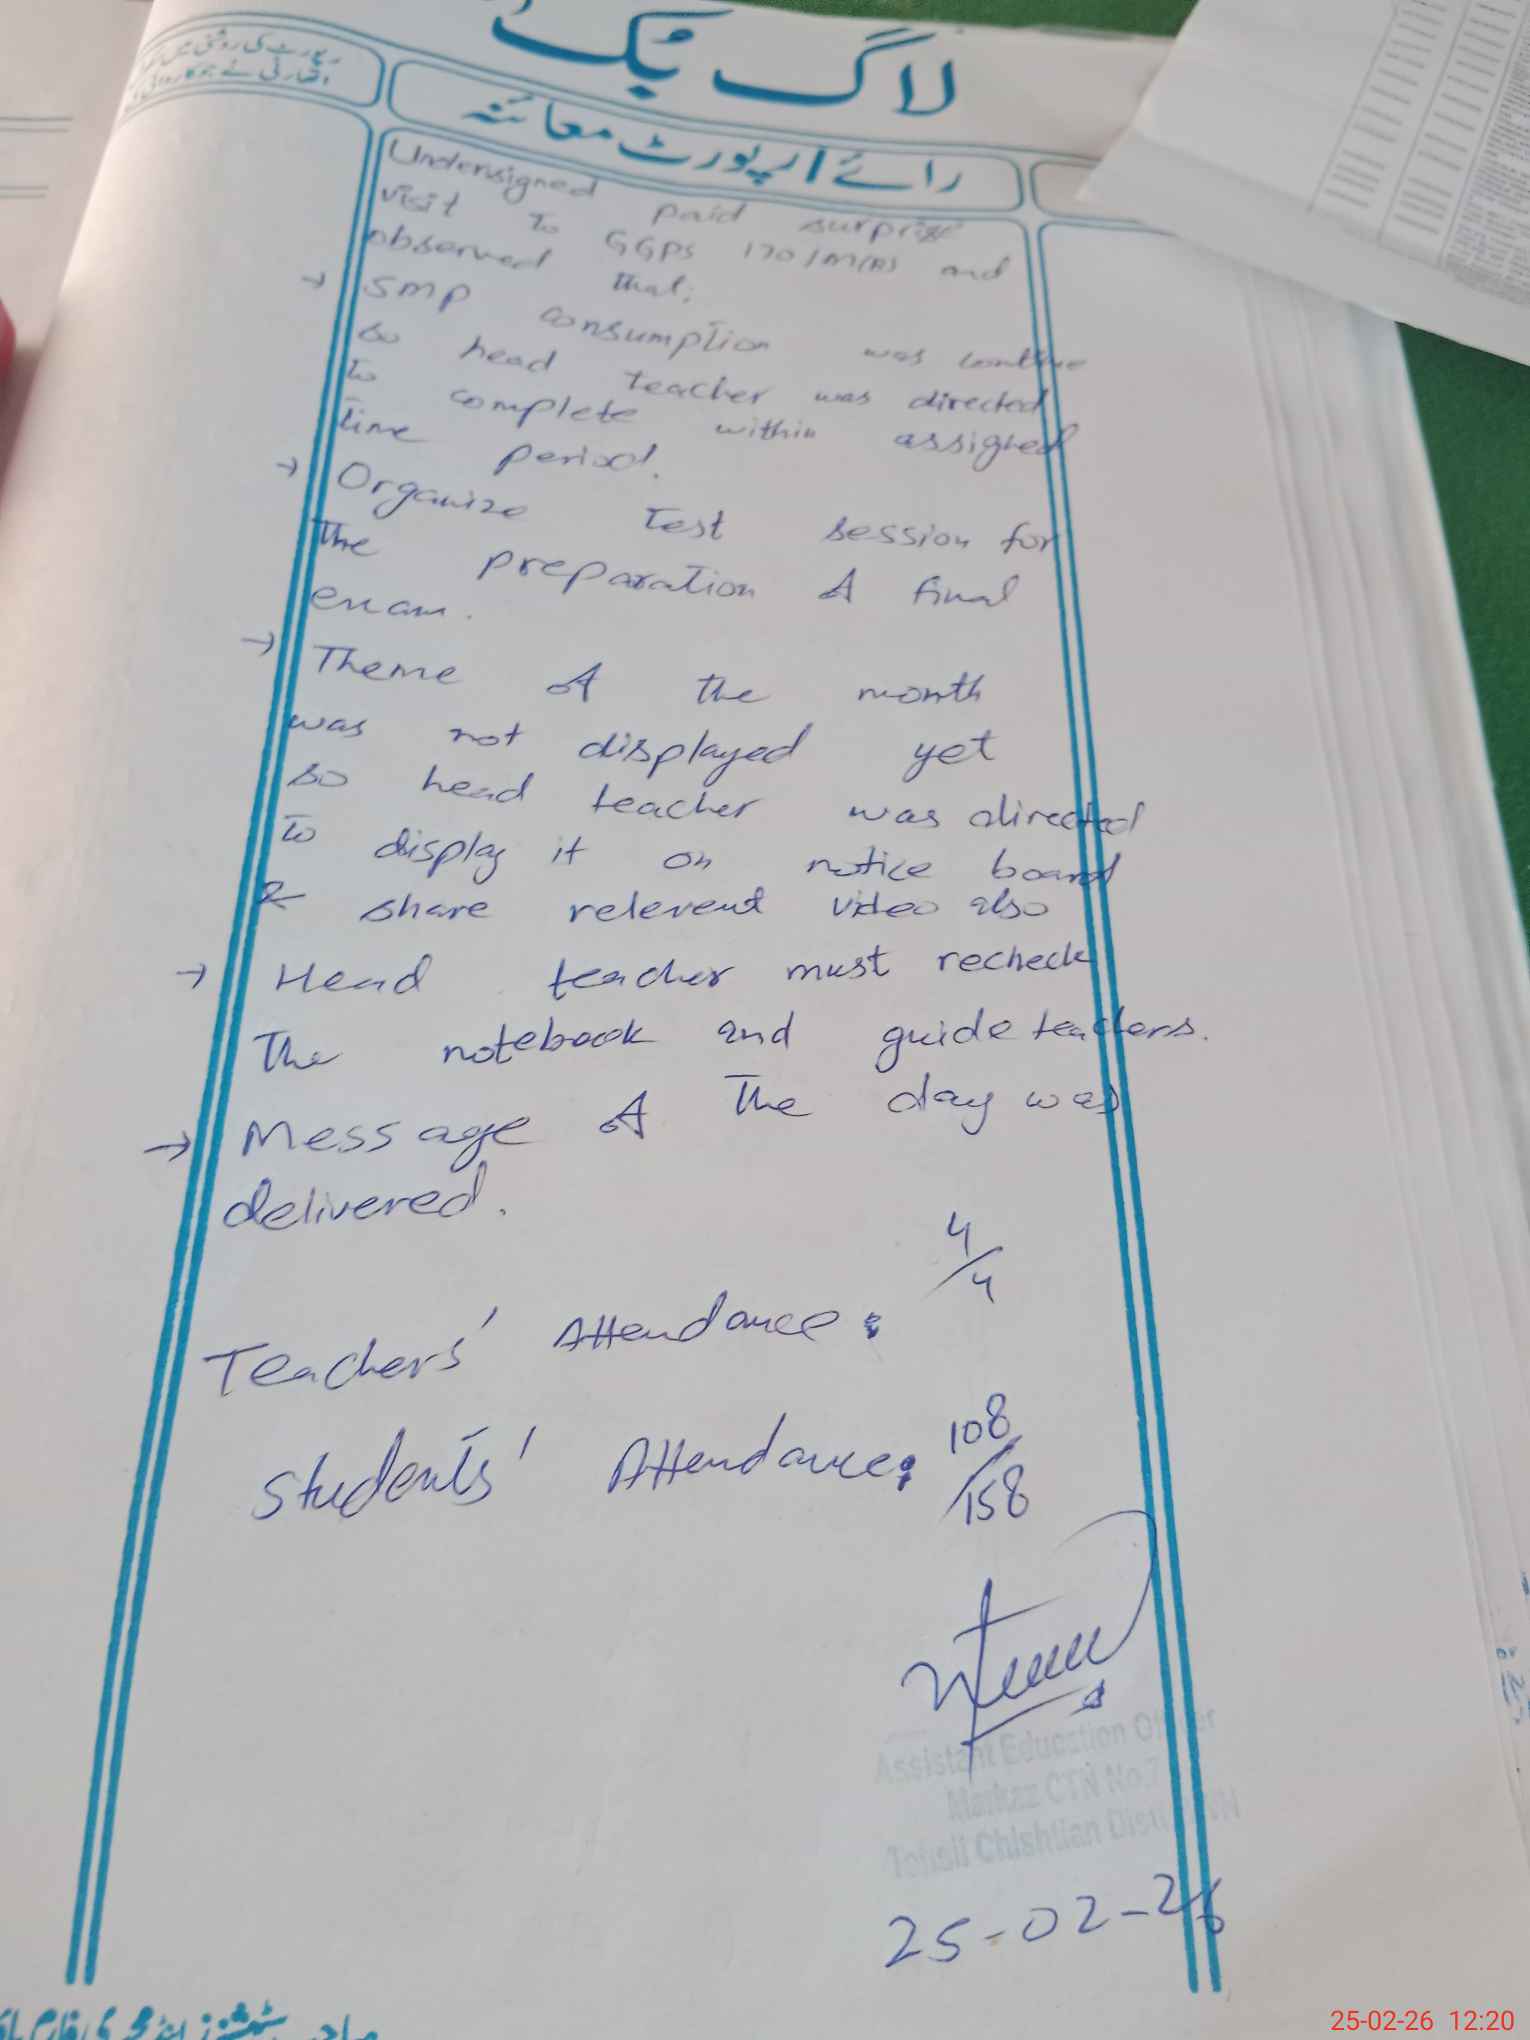 لاگ بک
رپورٹ کی روشنی میں
رائے / رپورٹ معائنہ
Undersigned paid surprise
visit to GGPS 170/M(R) and
observed that;
→ SMP consumption was
so head teacher was directed
to complete within assigned
time period.
→ Organize Test session for
the preparation of final
exam.
→ Theme of the month
was not displayed yet
so head teacher was directed
to display it on notice board
& share relevent video also
→ Head teacher must recheck
the notebook and guide teachers.
→ Message of the day was
delivered.
Teachers' Attendance: 4/4
Students' Attendance: 108/158
Assistant Education Officer
Markaz CTN No.7
Tehsil Chishtian Distt
25-02-26
25-02-26 12:20